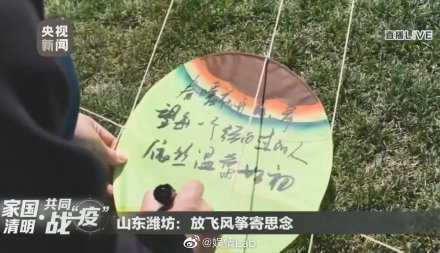 央视
新闻
直播LIVE
望每一个经过的人
依然温柔如初
家国·共同
清明·战“疫”
山东潍坊：放飞风筝寄思念
@娱情Lab